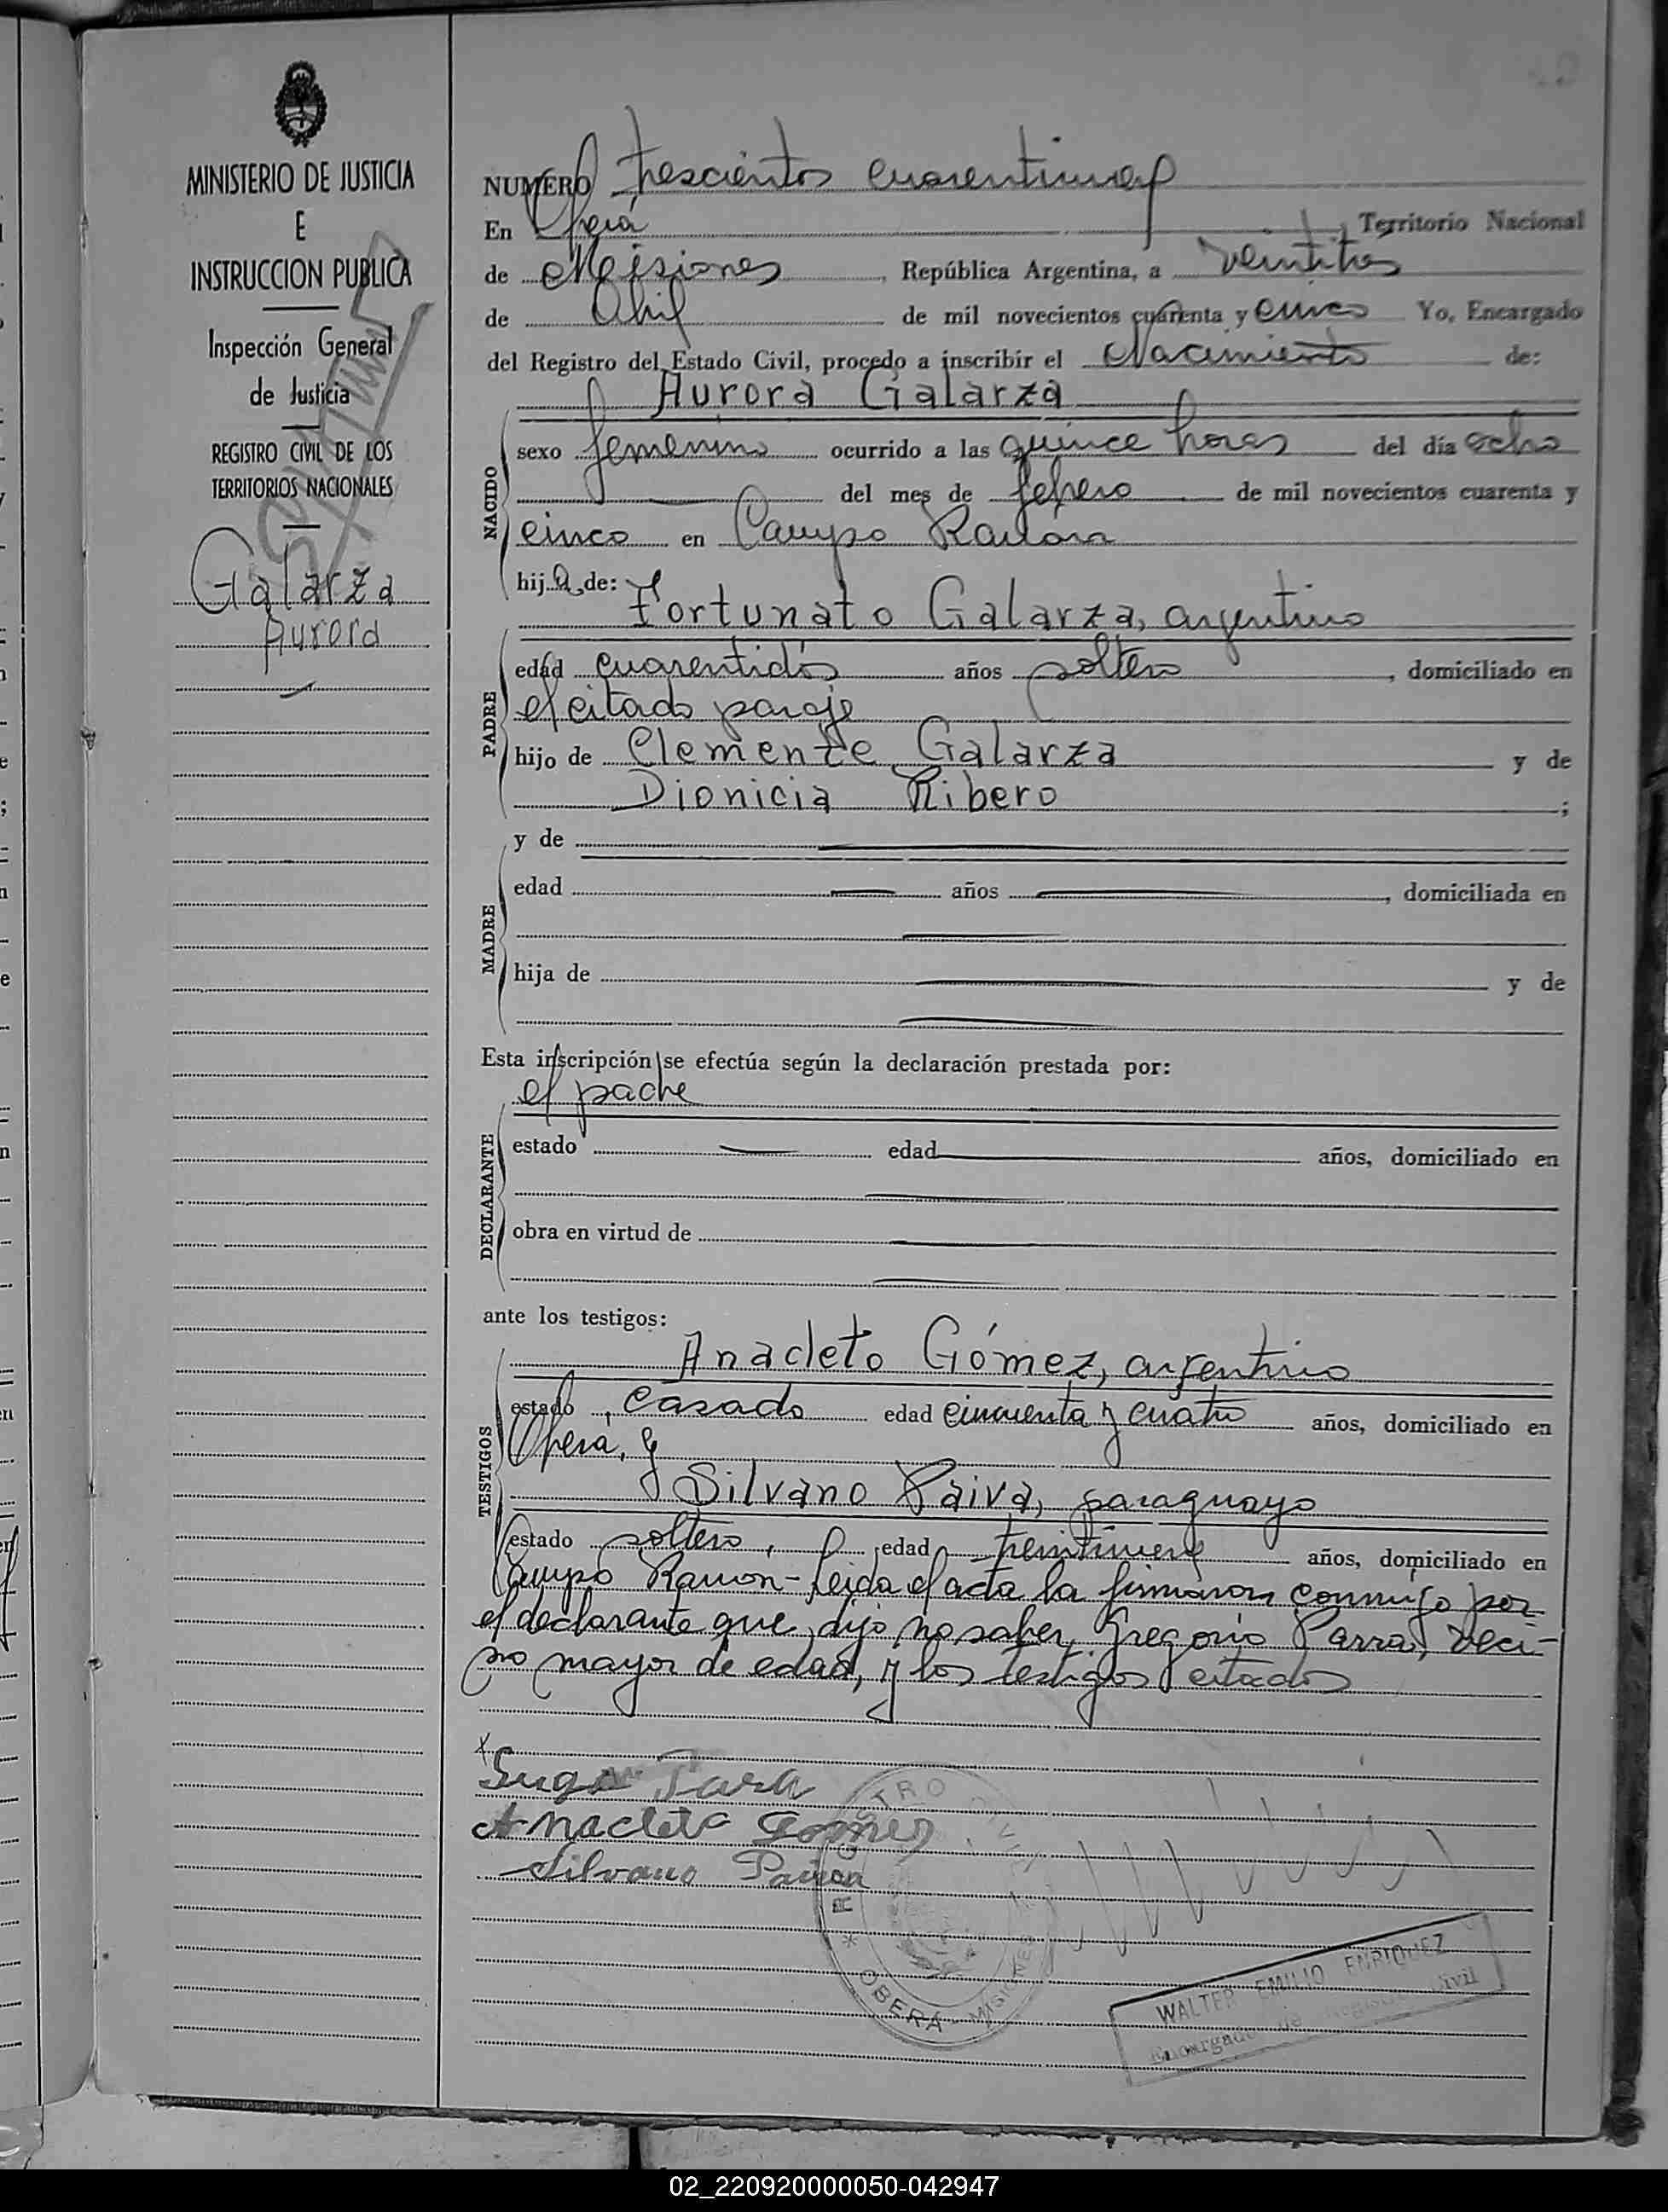 MINISTERIO DE JUSTICIA
E
INSTRUCCION PUBLICA
Inspección General
de Justicia
REGISTRO CIVIL DE LOS
TERRITORIOS NACIONALES
Galarza
Aurora
NUMERO trescientos
En Oberá, Territorio Nacional
de Misiones, República Argentina, a veintitres
de Abril de mil novecientos cuarenta y cinco Yo, Encargado
del Registro del Estado Civil, procedo a inscribir el Nacimiento de:
Aurora Galarza
NACIDO
sexo femenino ocurrido a las quince horas del día ocho
del mes de febrero de mil novecientos cuarenta y
cinco en Campo Ramón
hija de:
Fortunato Galarza, argentino
PADRE
edad cuarentidós años soltero, domiciliado en
el citado paraje
hijo de Clemente Galarza y de
Dionicia Ribero;
MADRE
y de
edad años, domiciliada en
hija de y de
Esta inscripción se efectúa según la declaración prestada por:
el padre
DECLARANTE
estado edad años, domiciliado en
obra en virtud de
ante los testigos:
TESTIGOS
Anacleto Gómez, argentino
estado, casado edad cincuenta y cuatro años, domiciliado en
Obera, y
Silvano Paiva, paraguayo
estado soltero, edad treintinueve años, domiciliado en
Campo Ramon- Leida el acta la firmaron conmigo por
el declarante que dijo no saber, Gregorio Parra, veci-
no mayor de edad, y los testigos citados
Anacleto Gomez
Silvano Paiva
REGISTRO CIVIL
* OBERÁ MISIONES
WALTER EMILIO ENRIQUEZ
Encargado de Registro Civil
02_220920000050-042947